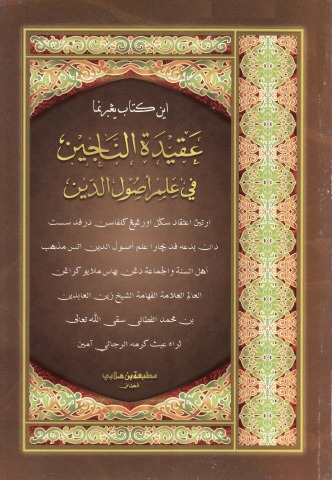 اين كتاب يڠبرنما
عقيدة الناجين
في علم أصول الدين
ارتيڽ اعتقاد سكل اورڠ يڠ كلفاسن درفد سست
دان بدعه فد بچارا علم أصول الدين اتس مذهب
أهل السنة والجماعة دڠن بهاس ملايو كراڠن
العالم العلامة الفهامة الشيخ زين العابدين
بن محمد الفطاني سقى الله تعالى
ثراه غيث كرمه الرجائي آمين
مطبعة بن هلابي
فطاني